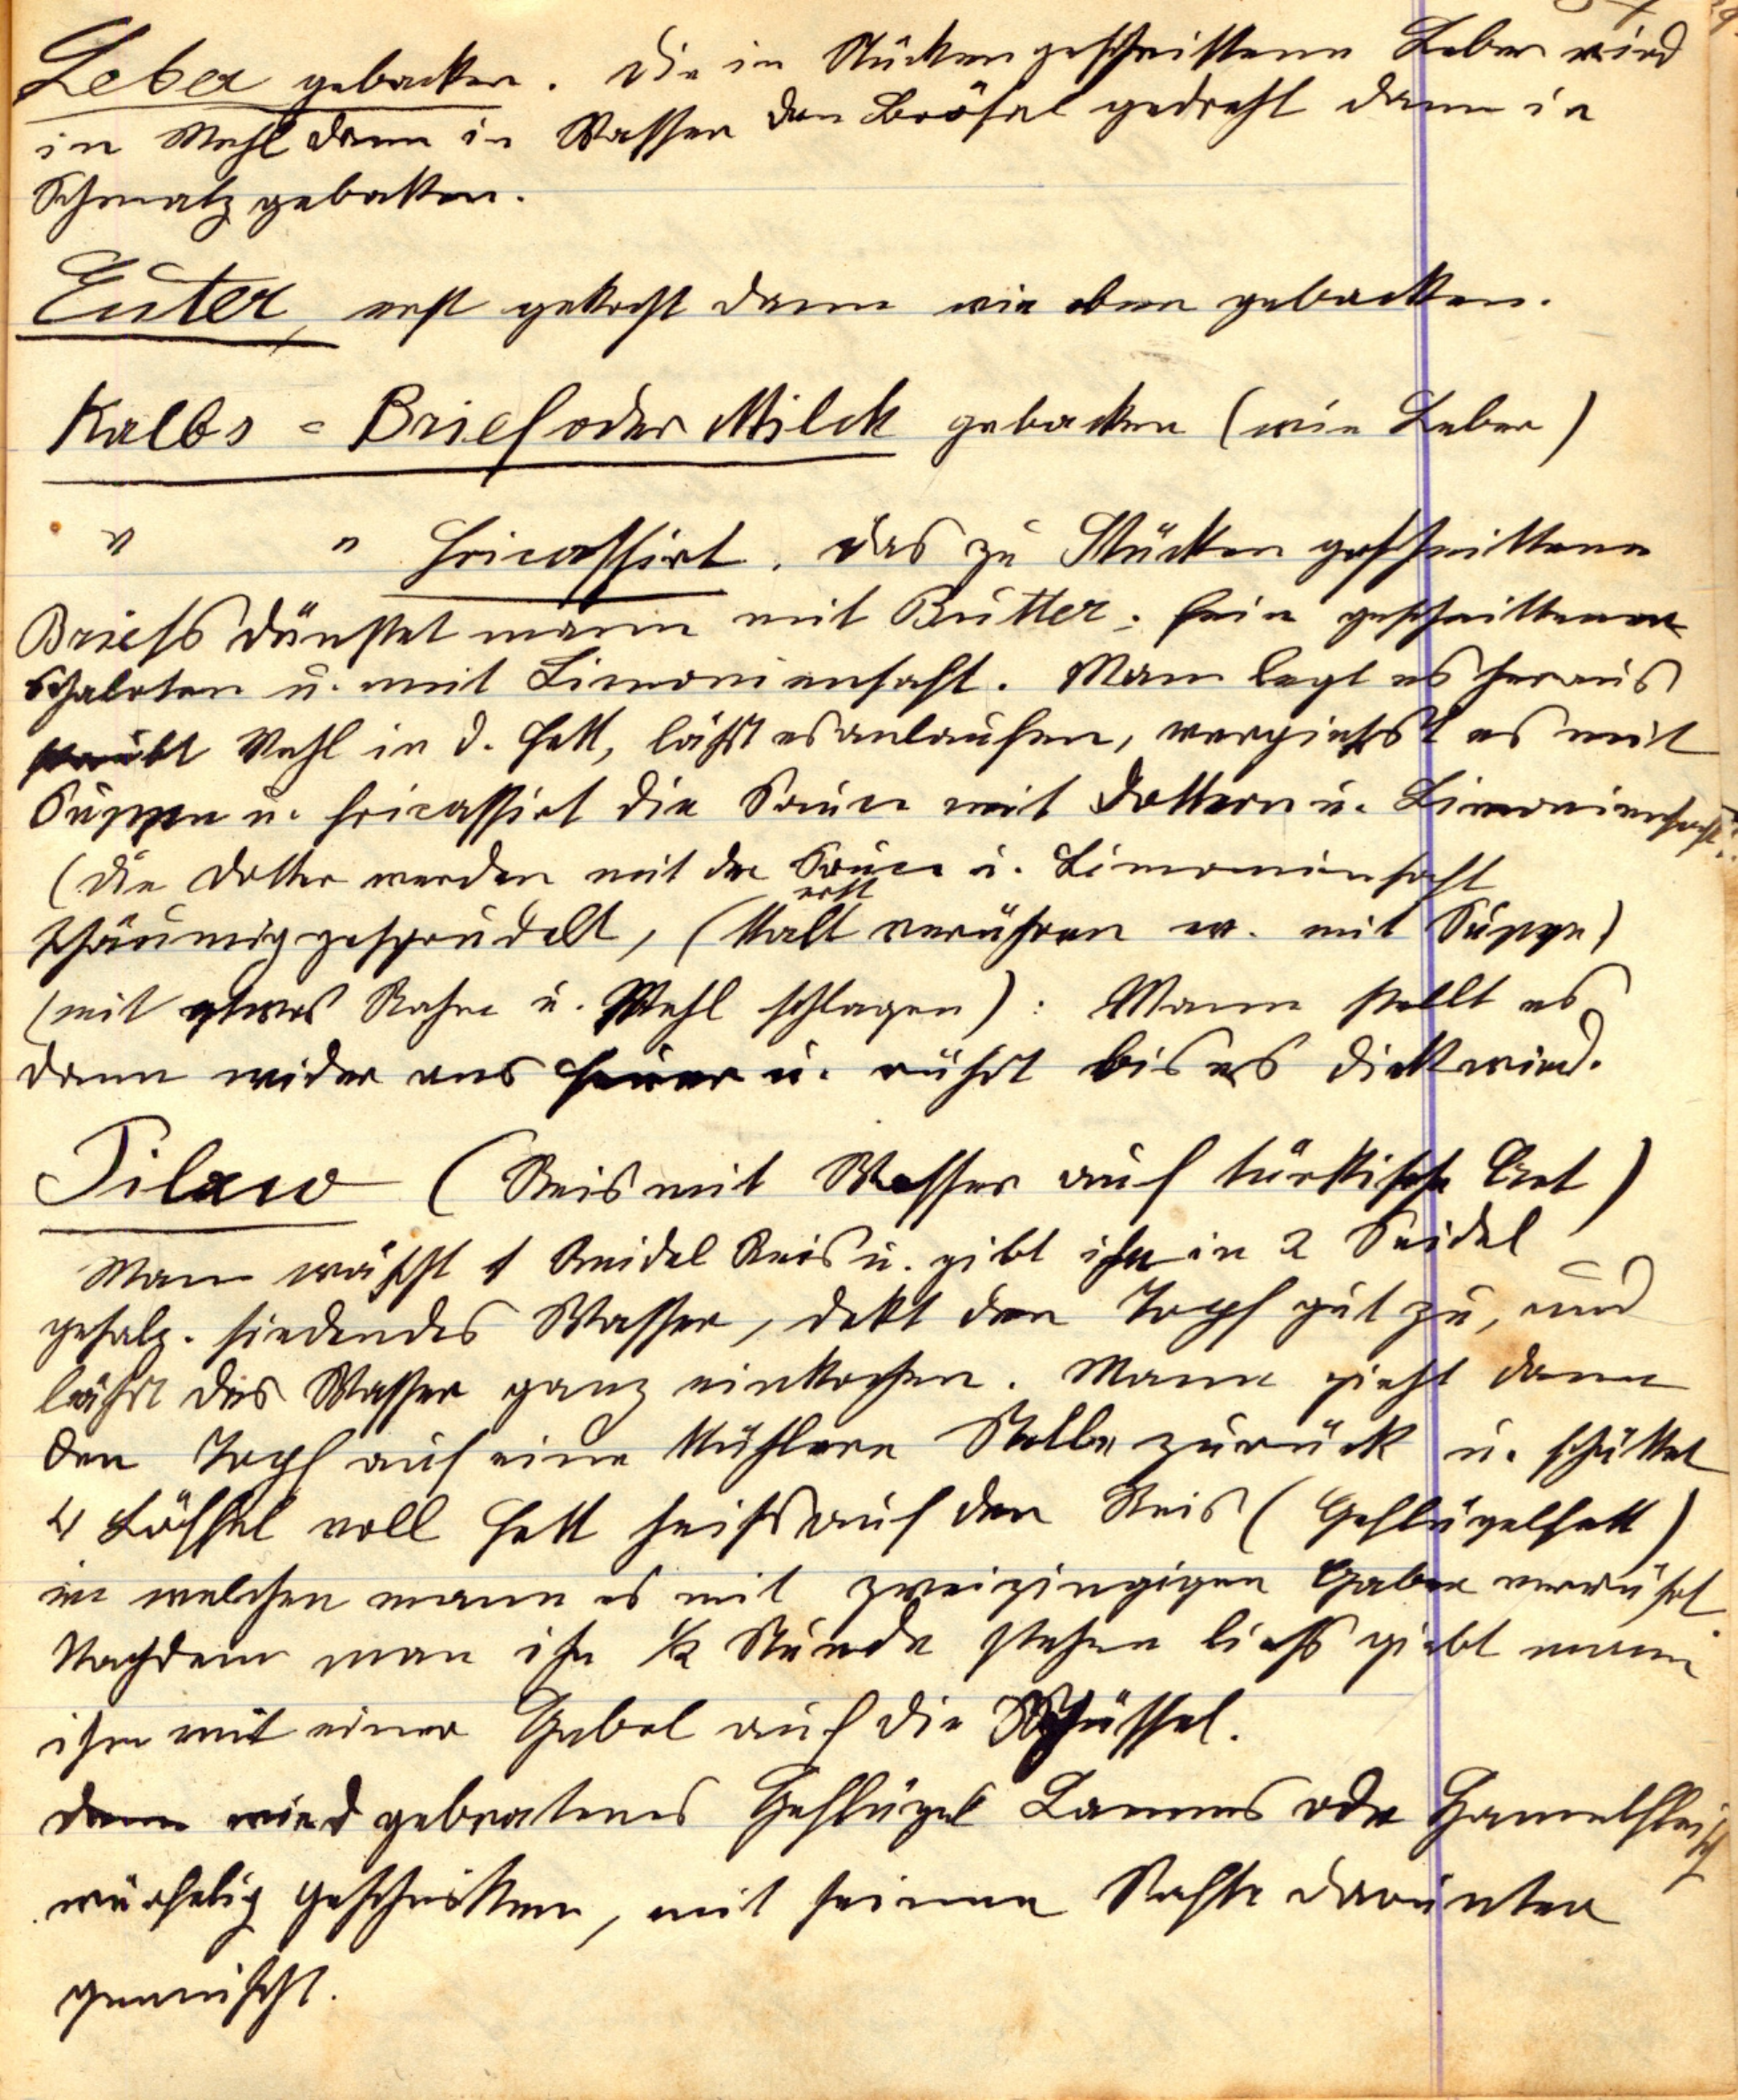 Leber gebacken. Die in Stücken geschnittene Leber wird
in Mehl dann in Wasser dan Brösel gedreht dann in
Schmalz gebakken.
Euter, erst gekocht dann wie oben gebakken.
Kalbs = Brief oder Milch gebacken (wie Leber)
" " Fricassirt. Das zu Stücken geschnittene
Briefs dünstet mann mit Butter, fein geschnittenen
Schaloten u. mit Limoniensaft. Man legt es heraus
staubt Mehl in d. Fett, läßt es anlaufen, vergießt es mit
Suppe u. fricassirt die Sauce mit Dottern u. Limoniensaft.
(Die Dotter werden mit der Sauce u. Limoniensaft
schäumig gesprudelt, (kalt erst verrühren ev. mit Suppe)
(mit etwas Rahm u. Mehl schlagen): Mann stellt es
dann wider ans Feuer u. rührt bis es dick wird.
Pilaw (Reis mit Wasser auf türkische Art)
Man wäscht 1 Seidel Reis u. gibt ihn in 2 Seidel
gesalz. siedendes Wasser, dekt den Topf gut zu, und
läßt das Wasser ganz einkochen. Mann zieht dann
den Topf auf eine kühlere Stelle zurück u. schüttet
4 Löffel voll Fett heiß auf den Reis (Geflügelfett)
in welchen mann es mit zweizingigen Gabel verrührt
Nachdem man ihn 1/2 Stunde stehen ließ giebt mann
ihn mit einer Gabel auf die Schüssel.
Dann wird gebratenes Geflügel Lamms oder Hamelfleisch
würfelig geschnitten, mit seinem Safte darunter
gemischt.